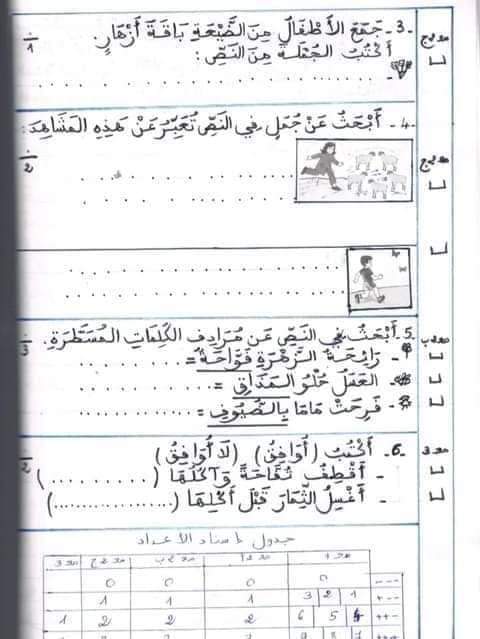 3- جَمَعَ الأَطْفَالُ مِنَ الضَّيْعَةِ بَاقَةَ أَزْهَارٍ.
مع2ج
1
أَكْتُبُ الجُمْلَةَ مِنَ النَّصِّ:
- . . . . . . . . . . . . . . . . . .
4- أَبْحَثُ عَنْ جُمَلٍ فِي النَّصِّ تُعَبِّرُ عَنْ هَذِهِ المَشَاهِدَ:
مع2ج
2
5- أَبْحَثُ فِي النَّصِّ عَنْ مُرَادِفِ الكَلِمَاتِ المُسَطَّرَةِ.
مع2ب
3
- رَائِحَةُ الزَّهْرَةِ فَوَّاحَةٌ = . . . . . . . . . .
- العَسَلُ حُلْوُ المَذَاقِ = . . . . . . . . . .
- فَرِحَتْ مَامَا بِالضُّيُوفِ = . . . . . . . . . .
6- أَكْتُبُ (أُوَافِقُ) (لَا أُوَافِقُ)
مع3
2
- أَقْطِفُ تُفَّاحَةً وَآكُلُهَا (. . . . . . . . . .)
- أَغْسِلُ الثِّمَارَ قَبْلَ أَكْلِهَا (. . . . . . . . . .)
جدول إسناد الأعداد
مع1 مع2أ مع2ب مع2ج مع3
--- 0 0 0 0
+-- 1 2 3 1 1 1
++- 4 5 6 2 2 2 1